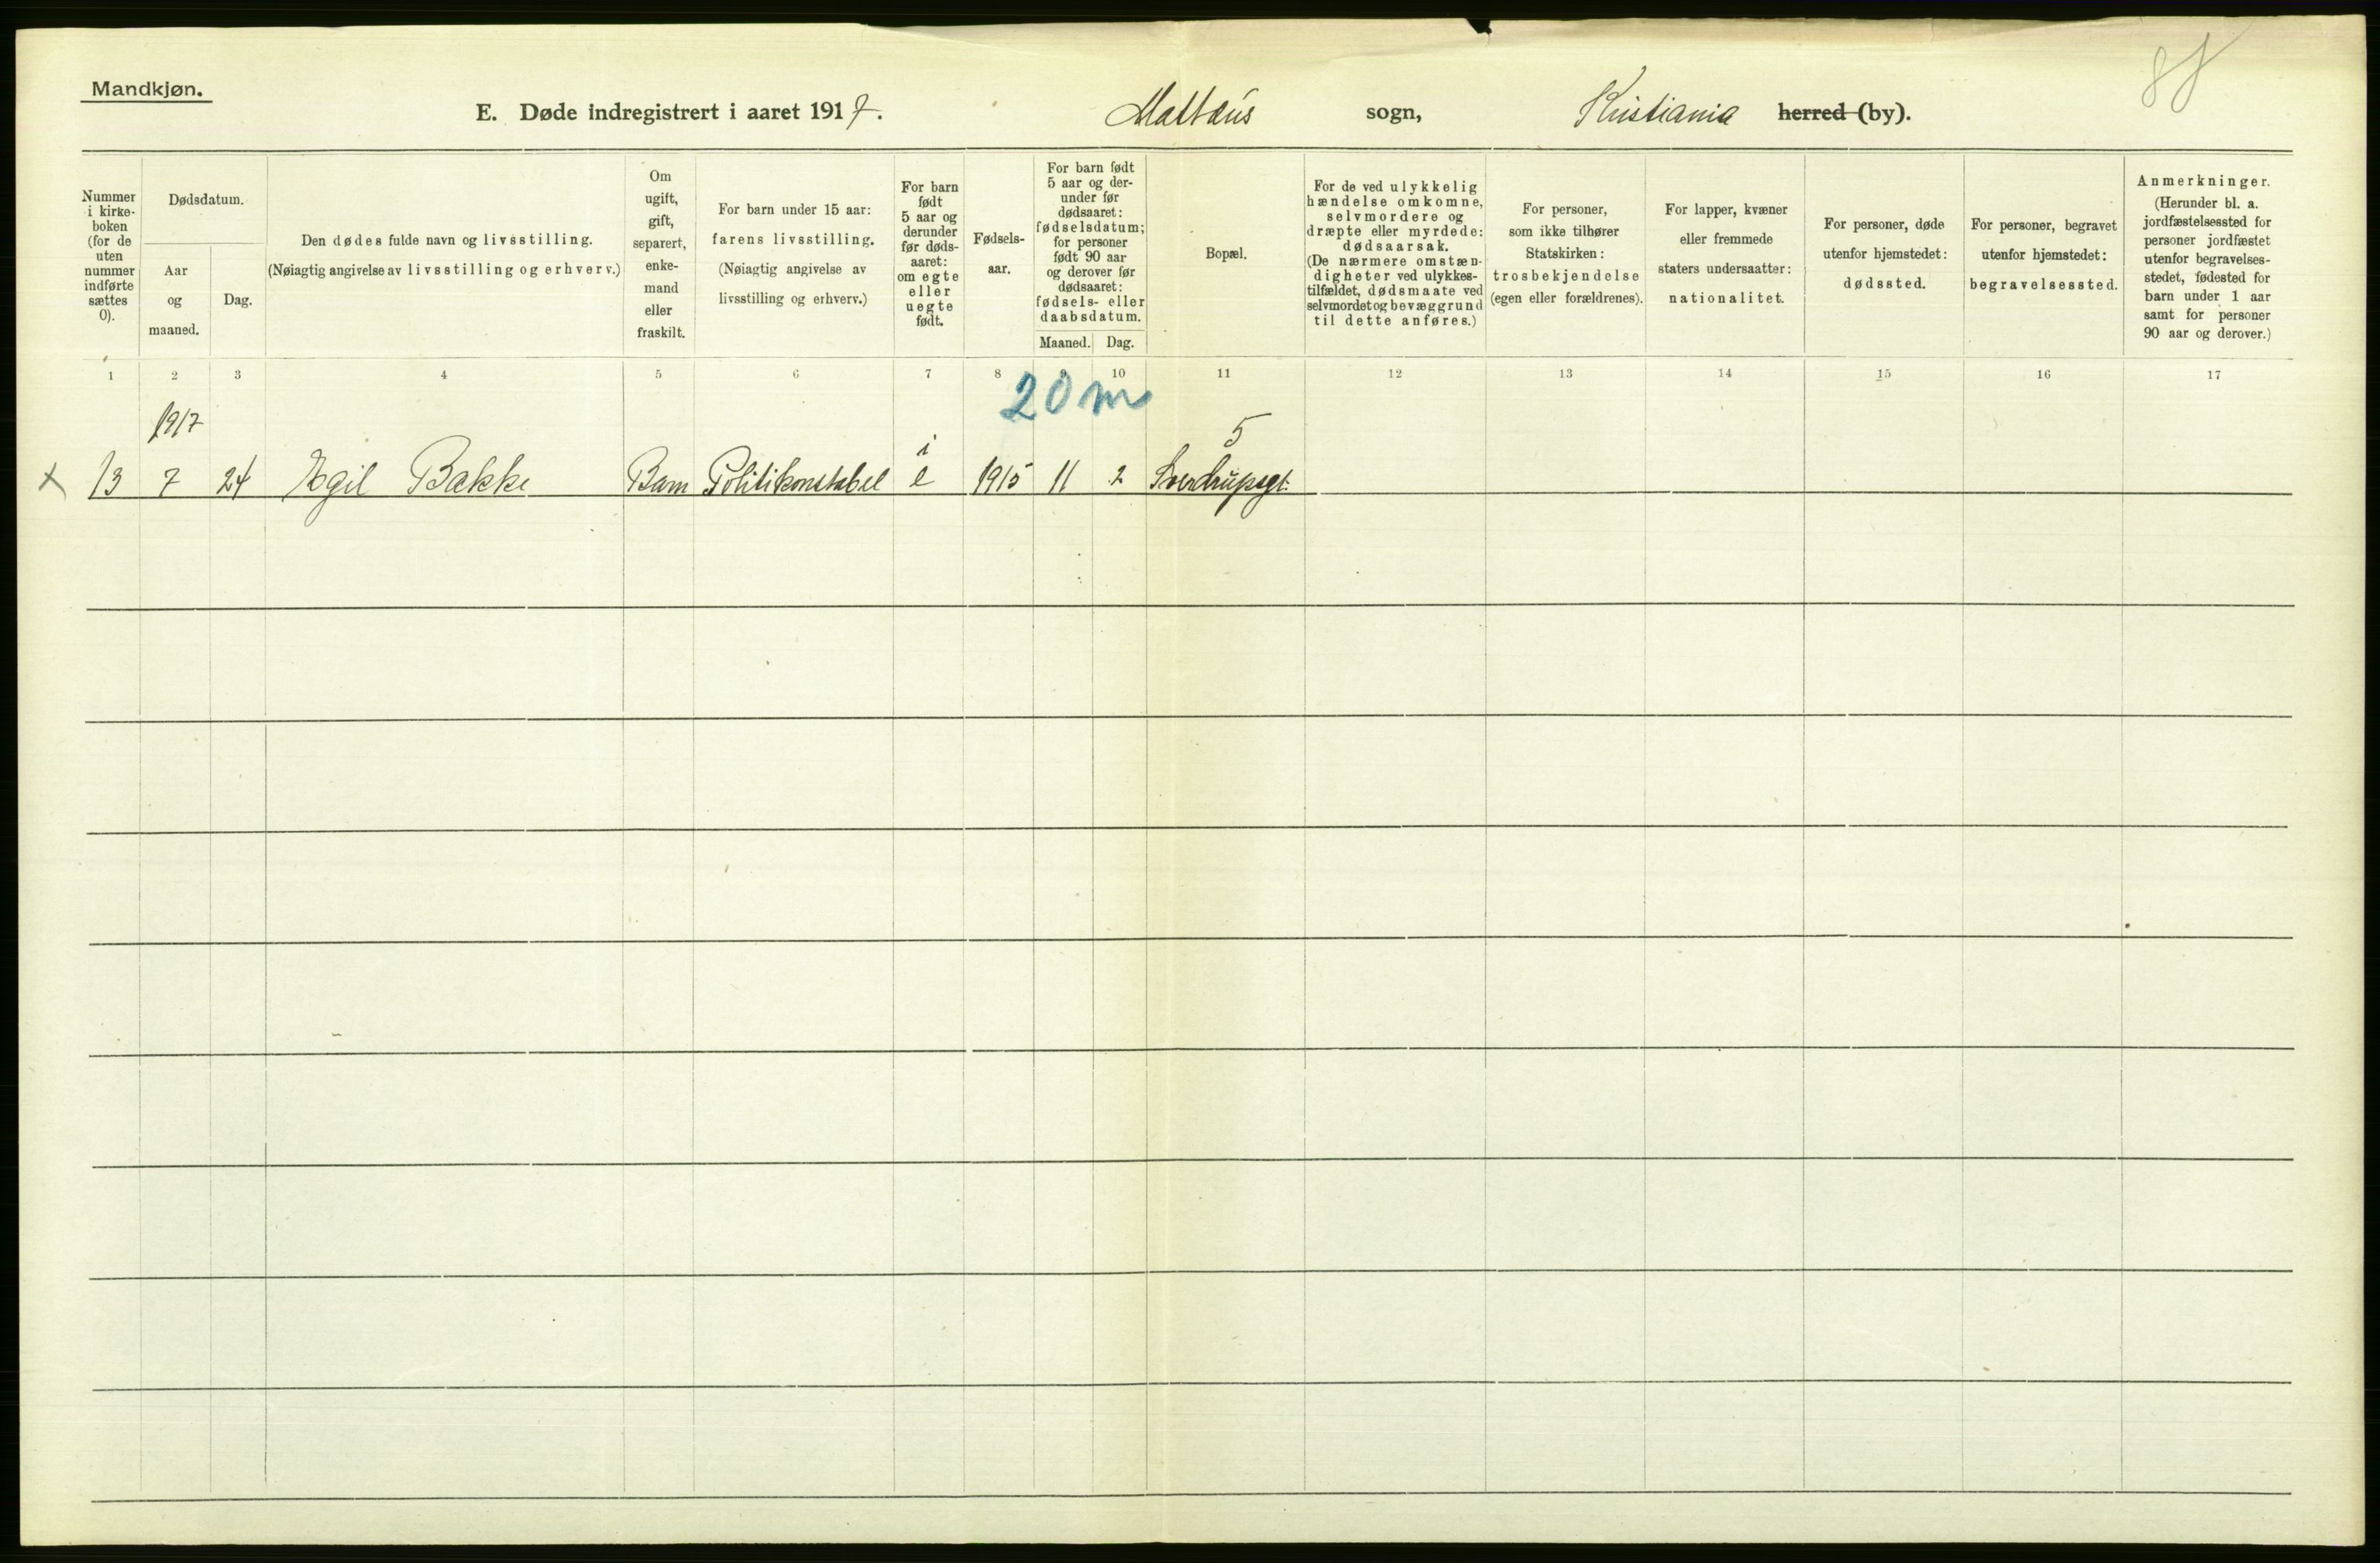 88
Mandkjøn.
E. Døde indregistrert i aaret 1917. Mattæus sogn, Kristiania herred (by).
Nummer
i kirke-
boken
(for de
uten
nummer
indførte
sættes
0).
Dødsdatum.
Aar
og
maaned.
Dag.
Den dødes fulde navn og livsstilling.
(Nøiagtig angivelse av livsstilling og erhverv.)
Om
ugift,
gift,
separert,
enke-
mand
eller
fraskilt.
For barn under 15 aar:
farens livsstilling.
(Nøiagtig angivelse av
livsstilling og erhverv.)
For barn
født
5 aar og
derunder
før døds-
aaret:
om egte
eller
uegte
født.
Fødsels-
aar.
For barn født
5 aar og der-
under før
dødsaaret:
fødselsdatum;
for personer
født 90 aar
og derover før
dødsaaret:
fødsels- eller
daabsdatum.
Maaned. Dag.
Bopæl.
For de ved ulykkelig
hændelse omkomne,
selvmordere og
dræpte eller myrdede:
dødsaarsak.
(De nærmere omstæn-
digheter ved ulykkes-
tilfældet, dødsmaate ved
selvmordet og bevæggrund
til dette anføres.)
For personer,
som ikke tilhører
Statskirken:
trosbekjendelse
(egen eller forældrenes).
For lapper, kvæner
eller fremmede
staters undersaatter:
nationalitet.
For personer, døde
utenfor hjemstedet:
dødssted.
For personer, begravet
utenfor hjemstedet:
begravelsessted.
Anmerkninger.
(Herunder bl. a.
jordfæstelsessted for
personer jordfæstet
utenfor begravelses-
stedet, fødested for
barn under 1 aar
samt for personer
90 aar og derover.)
1 2 3 4 5 6 7 8 9 10 11 12 13 14 15 16 17
20 m
1917
i 5
x 13 7 24 Egil Bakke Barn Politikonstabel e 1915 11 2 Sverdrupsgt.